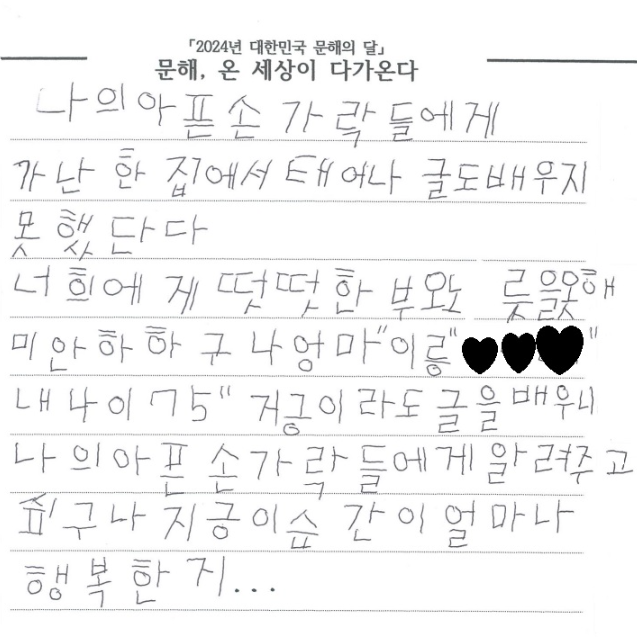 「2024년 대한민국 문해의 달」
문해, 온 세상이 다가온다
나의아픈손가락들에게
까난한집에서태어나글도배우지
못했단다
너희에게떳떳한부모 릇을못해
미안하하구나엉마"이름"
내나이75"저긍이라도글을배우니
나의아픈손가락들에게알려주고
싶구나지긍이슌간이얼마나
행복한지...